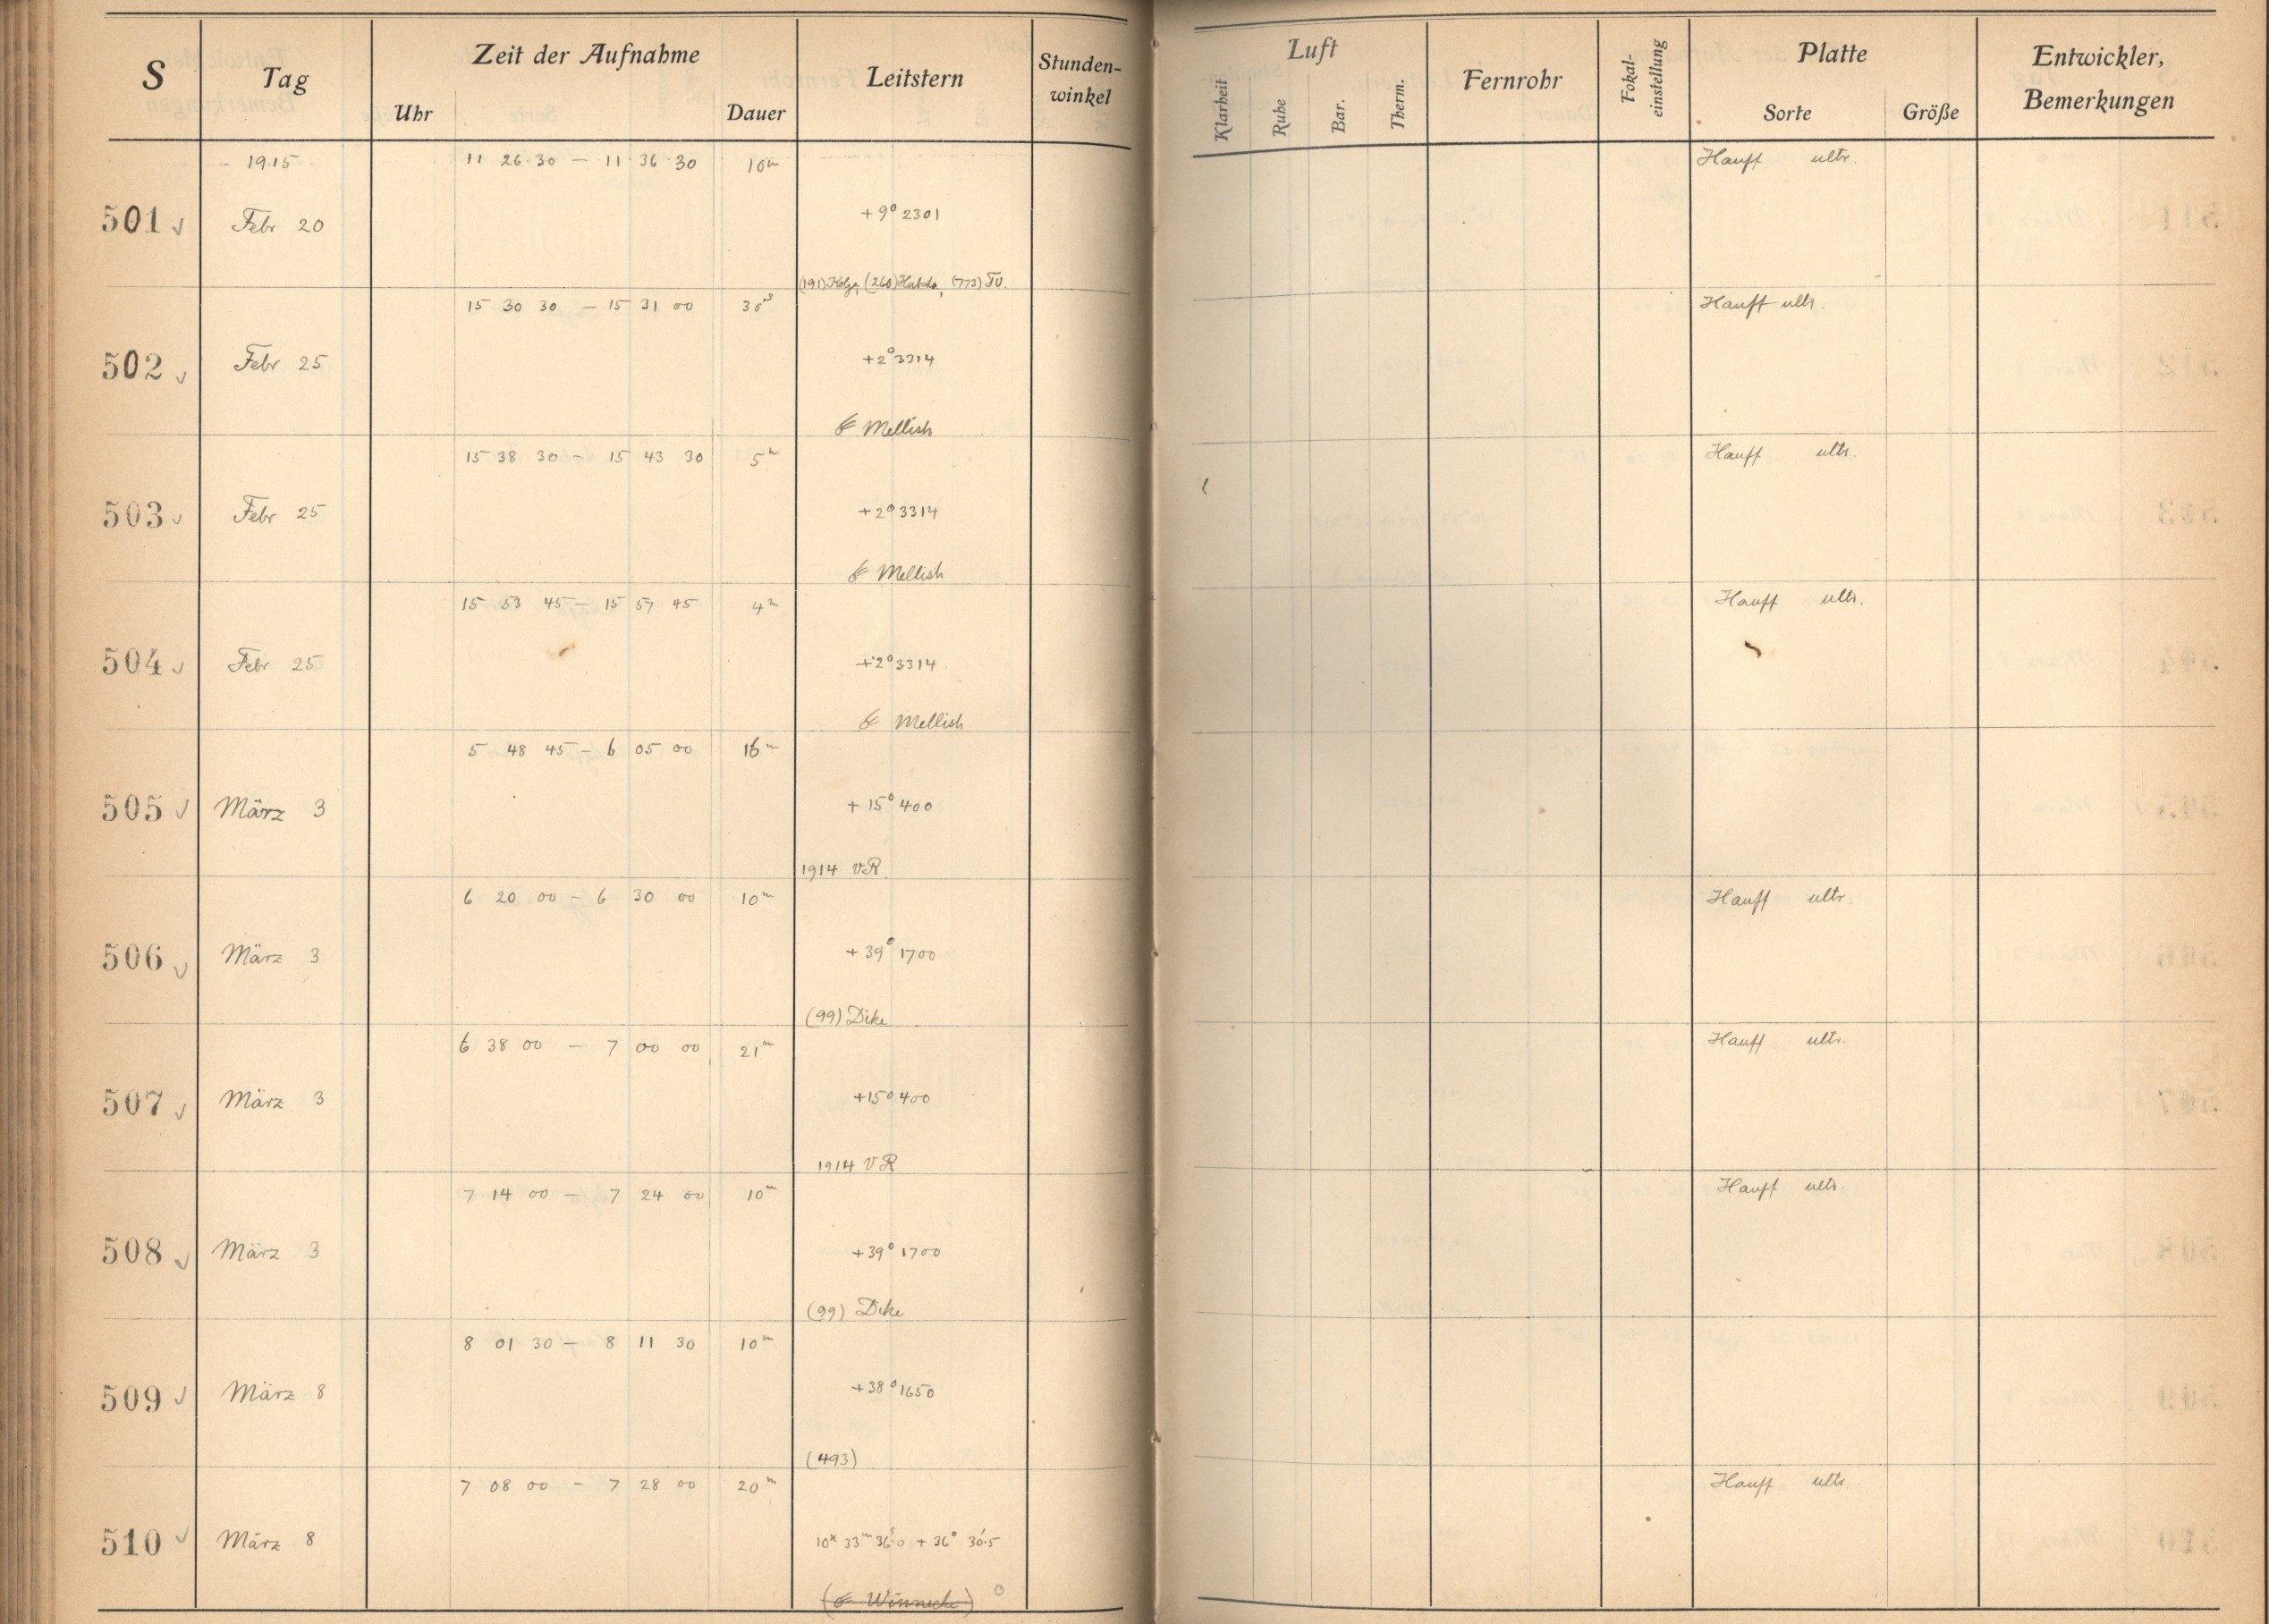 S Tag Zeit der Aufnahme Leitstern Stunden-winkel Luft Fernrohr Fokal-einstellung Platte Entwickler, Bemerkungen
Uhr Dauer Klarheit Ruhe Bar. Therm. Sorte Größe
1915 11 26 30 — 11 36 30 10m Hauff ultr.
501 Febr 20 +9° 2301
(191) Kolga, (260) Huberta, (773)
15 30 30 — 15 31 00 30s Hauff ultr.
502 Febr 25 +2° 3314
☄ Mellish
15 38 30 — 15 43 30 5m Hauff ultr.
503 Febr 25 +2° 3314
☄ Mellish
15 53 45 — 15 57 45 4m Hauff ultr.
504 Febr 25 +2° 3314
☄ Mellish
5 48 45 — 6 05 00 16m
505 März 3 +15° 400
1914 VR
6 20 00 — 6 30 00 10m Hauff ultr.
506 März 3 +39° 1700
(99) Dike
6 38 00 — 7 00 00 21m Hauff ultr.
507 März 3 +15° 400
1914 VR
7 14 00 — 7 24 00 10m Hauff ultr.
508 März 3 +39° 1700
(99) Dike
8 01 30 — 8 11 30 10m
509 März 8 +38° 1650
(493)
7 08 00 — 7 28 00 20m Hauff ultr.
510 März 8 10h 33m 36s.0 + 36° 30'.5
(☄ Winnecke)